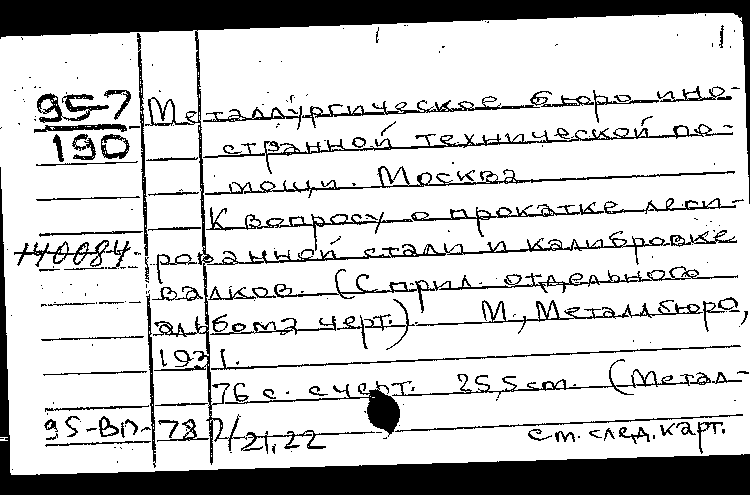 1
95-7 Металлургическое бюро ино-
190 странной технической по-
мощи. Москва.
К вопросу о прокатке леги-
140084 рованной стали и калибровке
валков. (С прил. отдельного
альбома черт.) М., Металлбюро,
1931.
76 с. с черт. 25,5 cm. (Метал-
95-ВП-78 7/21,22 см. след. карт.